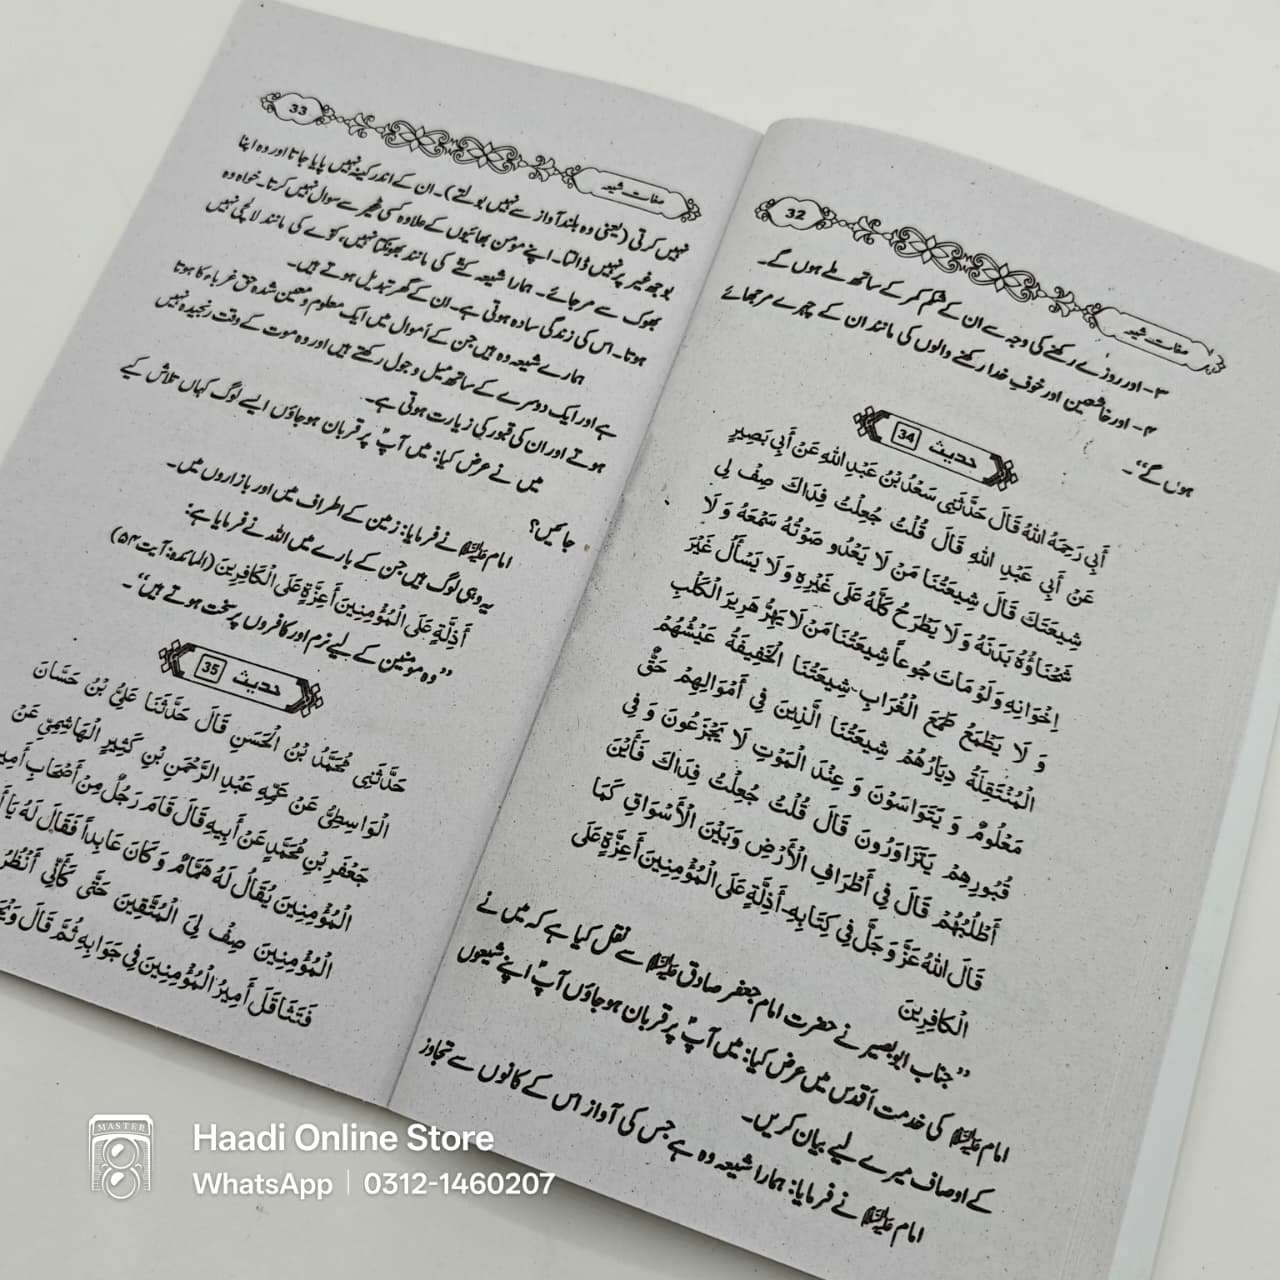 32
صفات شیعہ
۳- اور روزے رکھنے کی وجہ سے ان کے شکم کمر کے ساتھ ملے ہوں گے۔
۴- اور خاشعین اور خوفِ خدا رکھنے والوں کی مانند ان کے چہرے مرجھائے
ہوں گے“۔
حدیث 34
أَبِي رَحِمَهُ اللهُ قَالَ حَدَّثَنِي سَعْدُ بْنُ عَبْدِ اللهِ عَنْ أَبِي بَصِيرٍ
عَنْ أَبِي عَبْدِ اللهِ قَالَ قُلْتُ جُعِلْتُ فِدَاكَ صِفْ لِي
شِيعَتَكَ قَالَ شِيعَتُنَا مَنْ لَا يَعْدُو صَوْتُهُ سَمْعَهُ وَ لَا
شَحْنَاؤُهُ بَدَنَهُ وَ لَا يَطْرَحُ كَلَّهُ عَلَى غَيْرِهِ وَ لَا يَسْأَلُ غَيْرَ
إِخْوَانِهِ وَ لَوْ مَاتَ جُوعاً شِيعَتُنَا مَنْ لَا يَهِرُّ هَرِيرَ الْكَلْبِ
وَ لَا يَطْمَعُ طَمَعَ الْغُرَابِ۔ شِيعَتُنَا الْخَفِيفَةُ عَيْشُهُمْ
الْمُنْتَقِلَةُ دِيَارُهُمْ شِيعَتُنَا الَّذِينَ فِي أَمْوَالِهِمْ حَقٌّ
مَعْلُومٌ وَ يَتَوَاسَوْنَ وَ عِنْدَ الْمَوْتِ لَا يَجْزَعُونَ وَ فِي
قُبُورِهِمْ يَتَزَاوَرُونَ قَالَ قُلْتُ جُعِلْتُ فِدَاكَ فَأَيْنَ
أَطْلُبُهُمْ قَالَ فِي أَطْرَافِ الْأَرْضِ وَبَيْنَ الْأَسْوَاقِ كَمَا
قَالَ اللهُ عَزَّ وَ جَلَّ فِي كِتَابِهِ۔ أَذِلَّةٍ عَلَى الْمُؤْمِنِينَ أَعِزَّةٍ عَلَى
الْكَافِرِينَ
”جناب ابو بصیر نے حضرت امام جعفر صادق علیہ السلام سے نقل کیا ہے کہ میں نے
امام علیہ السلام کی خدمت اقدس میں عرض کیا: میں آپؑ پر قربان ہو جاؤں آپؑ اپنے شیعوں
کے اوصاف میرے لیے بیان کریں۔
امام علیہ السلام نے فرمایا: ہمارا شیعہ وہ ہے جس کی آواز اس کے کانوں سے تجاوز
33
صفات شیعہ
نہیں کرتی (یعنی وہ بلند آواز سے نہیں بولتے)۔ ان کے اندر کینہ نہیں پایا جاتا اور وہ اپنا
بوجھ غیر پر نہیں ڈالتا۔ اپنے مومن بھائیوں کے علاوہ کسی غیر سے سوال نہیں کرتا۔ خواہ وہ
بھوک سے مر جائے۔ ہمارا شیعہ کتے کی مانند بھونکتا نہیں، کوے کی مانند لالچی نہیں
ہوتا۔ اس کی زندگی سادہ ہوتی ہے۔ ان کے گھر تبدیل ہوتے ہیں۔
ہمارے شیعہ وہ ہیں جن کے اموال میں ایک معلوم و معین شدہ حق غرباء کا ہوتا
ہے اور ایک دوسرے کے ساتھ میل و جول رکھتے ہیں اور وہ موت کے وقت رنجیدہ نہیں
ہوتے اور ان کی قبور کی زیارت ہوتی ہے۔
میں نے عرض کیا: میں آپؑ پر قربان ہو جاؤں ایسے لوگ کہاں تلاش کیے
جائیں؟
امام علیہ السلام نے فرمایا: زمین کے اطراف میں اور بازاروں میں۔
یہ وہی لوگ ہیں جن کے بارے میں اللہ نے فرمایا ہے:
أَذِلَّةٍ عَلَى الْمُؤْمِنِينَ أَعِزَّةٍ عَلَى الْكَافِرِينَ (المائدہ: آیت ۵۴)
”وہ مومنین کے لیے نرم اور کافروں پر سخت ہوتے ہیں“۔
حدیث 35
حَدَّثَنِي مُحَمَّدُ بْنُ الْحَسَنِ قَالَ حَدَّثَنَا عَلِيُّ بْنُ حَسَّانَ
الْوَاسِطِيُّ عَنْ عَمِّهِ عَبْدِ الرَّحْمَنِ بْنِ كَثِيرٍ الْهَاشِمِيِّ عَنْ
جَعْفَرِ بْنِ مُحَمَّدٍ عَنْ أَبِيهِ قَالَ قَامَ رَجُلٌ مِنْ أَصْحَابِ أَمِيرِ
الْمُؤْمِنِينَ يُقَالُ لَهُ هَمَّامٌ وَ كَانَ عَابِداً فَقَالَ لَهُ يَا
الْمُؤْمِنِينَ صِفْ لِيَ الْمُتَّقِينَ حَتَّى كَأَنِّي أَنْظُرُ
فَتَثَاقَلَ أَمِيرُ الْمُؤْمِنِينَ فِي جَوَابِهِ ثُمَّ قَالَ
MASTER
Haadi Online Store
WhatsApp | 0312-1460207